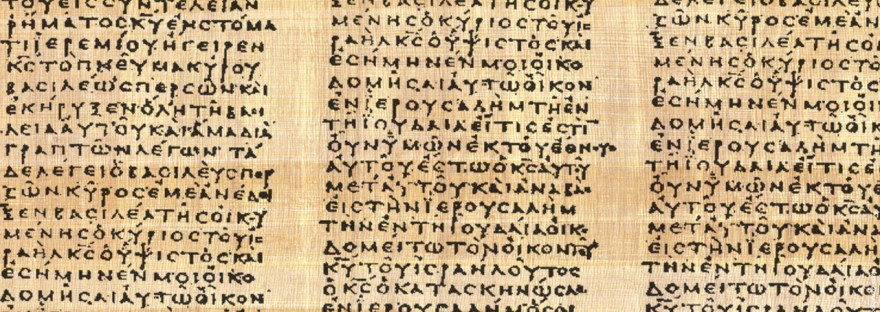 ΤΟΥΕΙϹϹΥΝΤΕΛΕΙΑΝ
ΡΗΜΑΤΟϹΚ̅Υ̅ΕΝϹΤΟΜΑ
ΤΙΙΕΡΕΜΙΟΥΗΓΕΙΡΕΝ
Κ̅Ϲ̅ΤΟΠΝΕΥΜΑΚΥΡΟΥ
ΒΑϹΙΛΕΩϹΠΕΡϹΩΝΚΑΙ
ΕΚΗΡΥΞΕΝΟΛΗΤΗΒΑϹΙ
ΛΕΙΑΑΥΤΟΥΚΑΙΑΜΑΔΙΑ
ΓΡΑΠΤΩΝΛΕΓΩΝ ΤΑ
ΔΕΛΕΓΕΙΟΒΑϹΙΛΕΥϹΠΕΡ
ϹΩΝΚΥΡΟϹΕΜΕΑΝΕΔΕΙ
ΞΕΝΒΑϹΙΛΕΑΤΗϹΟΙΚΟΥ
ΜΕΝΗϹΟΚΥΡΙΟϹΤΟΥΙϹ
ΡΑΗΛΚ̅Ϲ̅ΟΥΨΙϹΤΟϹΚΑΙ
ΕϹΗΜΗΝΕΝΜΟΙΟΙΚΟ
ΔΟΜΗϹΑΙΑΥΤΩΟΙΚΟΝ
ΞΕΝΒΑϹΙΛΕΑΤΗϹΟΙΚΟΥ
ΜΕΝΗϹΟΚΥΡΙΟϹΤΟΥΙϹ
ΡΑΗΛΚ̅Ϲ̅ΟΥΨΙϹΤΟϹΚΑΙ
ΕϹΗΜΗΝΕΝΜΟΙΟΙΚΟ
ΔΟΜΗϹΑΙΑΥΤΩΟΙΚΟΝ
ΕΝΙΕΡΟΥϹΑΛΗΜΤΗΕΝ
ΤΗΙΟΥΔΑΙΑΕΙΤΙϹΕϹΤΙ
ΟΥΝΥΜΩΝΕΚΤΟΥΕΘΝΟΥϹ
ΑΥΤΟΥΕϹΤΩΟΚ̅Ϲ̅ΑΥΤΟΥ
ΜΕΤΑΥΤΟΥΚΑΙΑΝΑΒΑϹ
ΕΙϹΤΗΝΙΕΡΟΥϹΑΛΗΜ
ΤΗΝΕΝΤΗΙΟΥΔΑΙΑΟΙΚ
ΔΟΜΕΙΤΩΤΟΝΟΙΚΟΝΤΟΥ
Κ̅Υ̅ΤΟΥΙϹΡΑΗΛΟΥΤΟϹ
ΟΚ̅Ϲ̅ΟΚΑΤΑϹΚΗΝΩϹΑϹ
ΕΝΙΕΡΟΥϹΑΛΗΜΟϹΟΙ
ΔΕΛΕΓΕΙΟΒΑϹΙΛΕΥϹΠΕΡ
ϹΩΝΚΥΡΟϹΕΜΕΑΝΕ
ΞΕΝΒΑϹΙΛΕΑΤΗϹΟΙ
ΜΕΝΗϹΟΚΥΡΙΟϹΤΟΥ
ΡΑΗΛΚ̅Ϲ̅ΟΥΨΙϹΤΟϹ
ΕϹΗΜΗΝΕΝΜΟΙΟΙΚ
ΔΟΜΗϹΑΙΑΥΤΩΟΙΚ
ΕΝΙΕΡΟΥϹΑΛΗΜΤΗ
ΤΗΙΟΥΔΑΙΑΕΙΤΙϹΕ
ΟΥΝΥΜΩΝΕΚΤΟΥΕ
ΑΥΤΟΥΕϹΤΩΟΚ̅Ϲ̅ΑΥ
ΜΕΤΑΥΤΟΥΚΑΙΑΝΑ
ΕΙϹΤΗΝΙΕΡΟΥϹΑΛΗ
ΤΗΝΕΝΤΗΙΟΥΔΑΙΑΟ
ΔΟΜΕΙΤΩΤΟΝΟΙΚΟΝ
Κ̅Υ̅ΤΟΥΙϹΡΑΗΛΟΥΤ